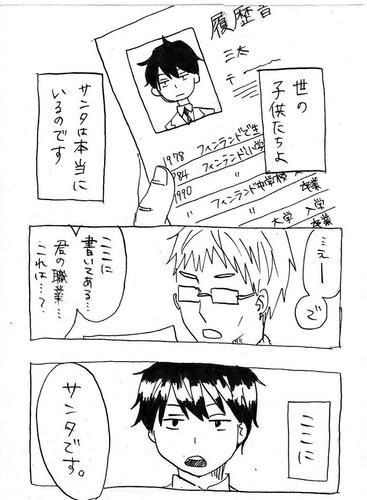 履歴書
三太
〒
世の
子供たちよ
サンタは本当に
いるのです
1978 フィンランドで生
984 フィンランド小学
1990 〃 卒業
フィンランド中学校 入
〃 卒業
大学 入学
〃 卒業
…えー
で
ここに
書いてある…
君の職業…
これは…?
ここに
サンタです。